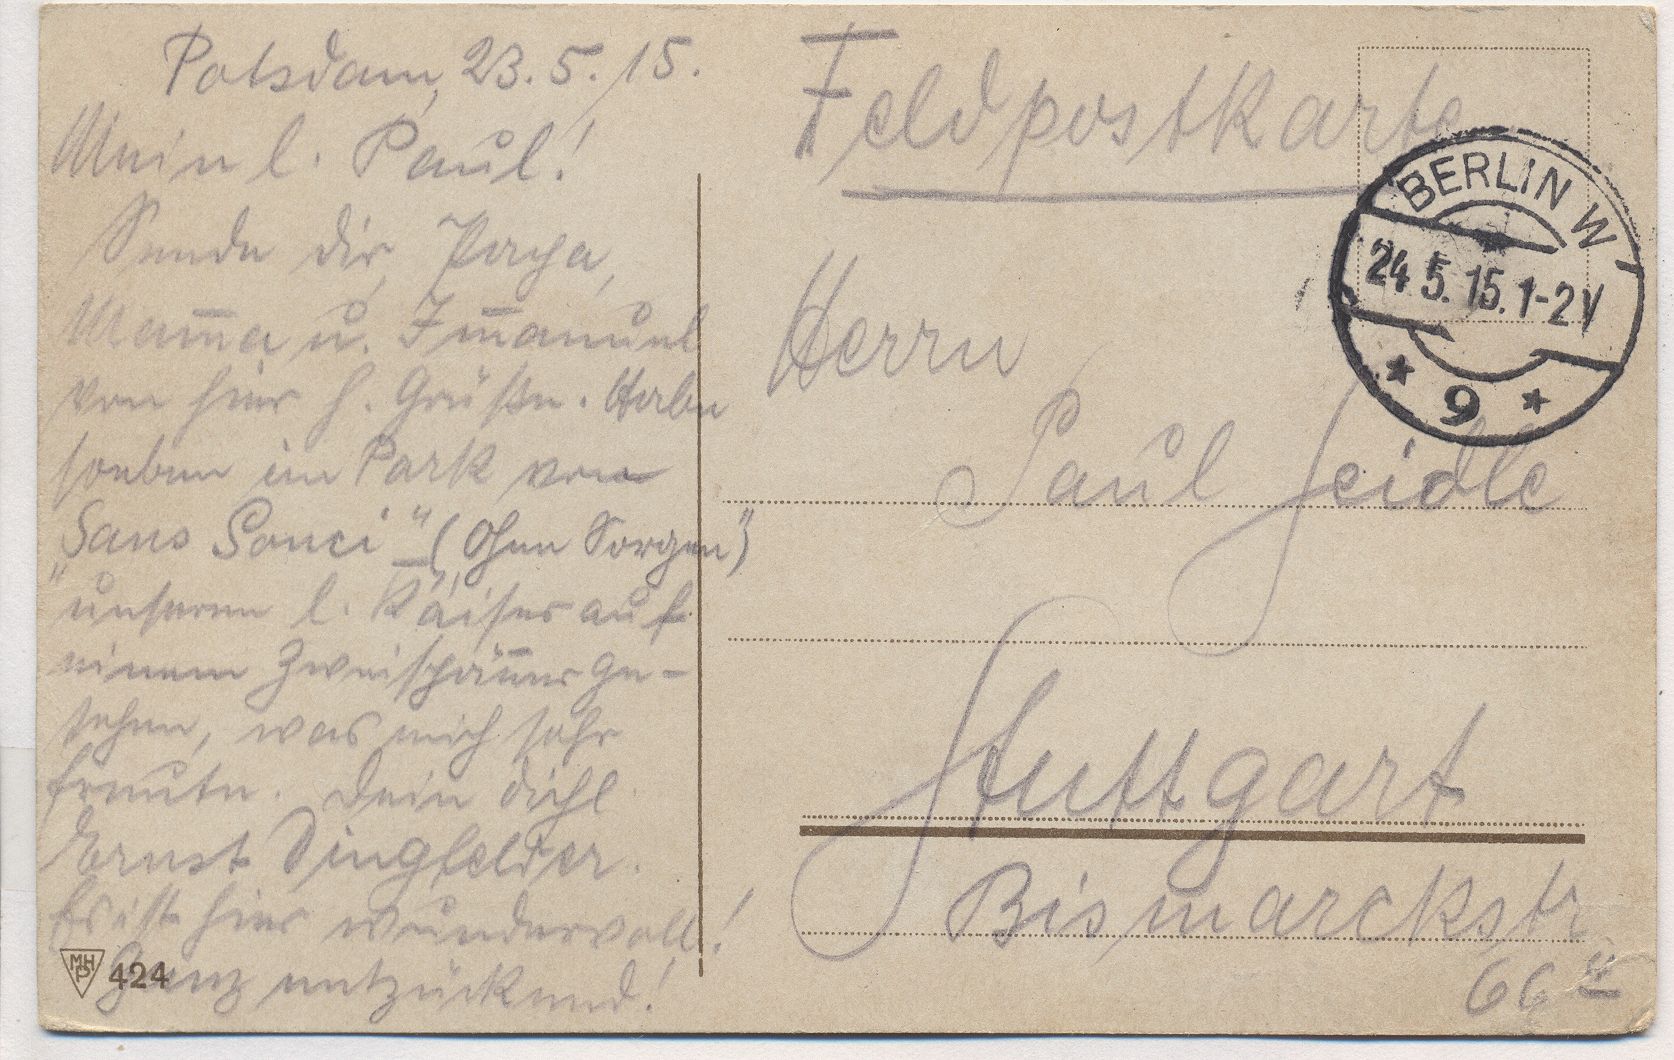 Potsdam, 23.5.15.
Mein l. Paul!
Sende dir, Papa,
Mam̄a u. Im̄anuel
von hier h. Grüße. Habe
soeben im Park von
„Sans Souci" („Ohne Sorgen")
unseren l. Kaiser auf
einem Zweispän̄er ge-
sehen, was mich sehr
freute. Dein dichl.
Ernst Dingfelder.
Es ist hier wundervoll!
Ganz entzückend!
MHP 424
Feldpostkarte
BERLIN W
24.5.15.1-2V
* 9 *
Herrn
Paul Seidle
Stuttgart
Bismarckstr.
66